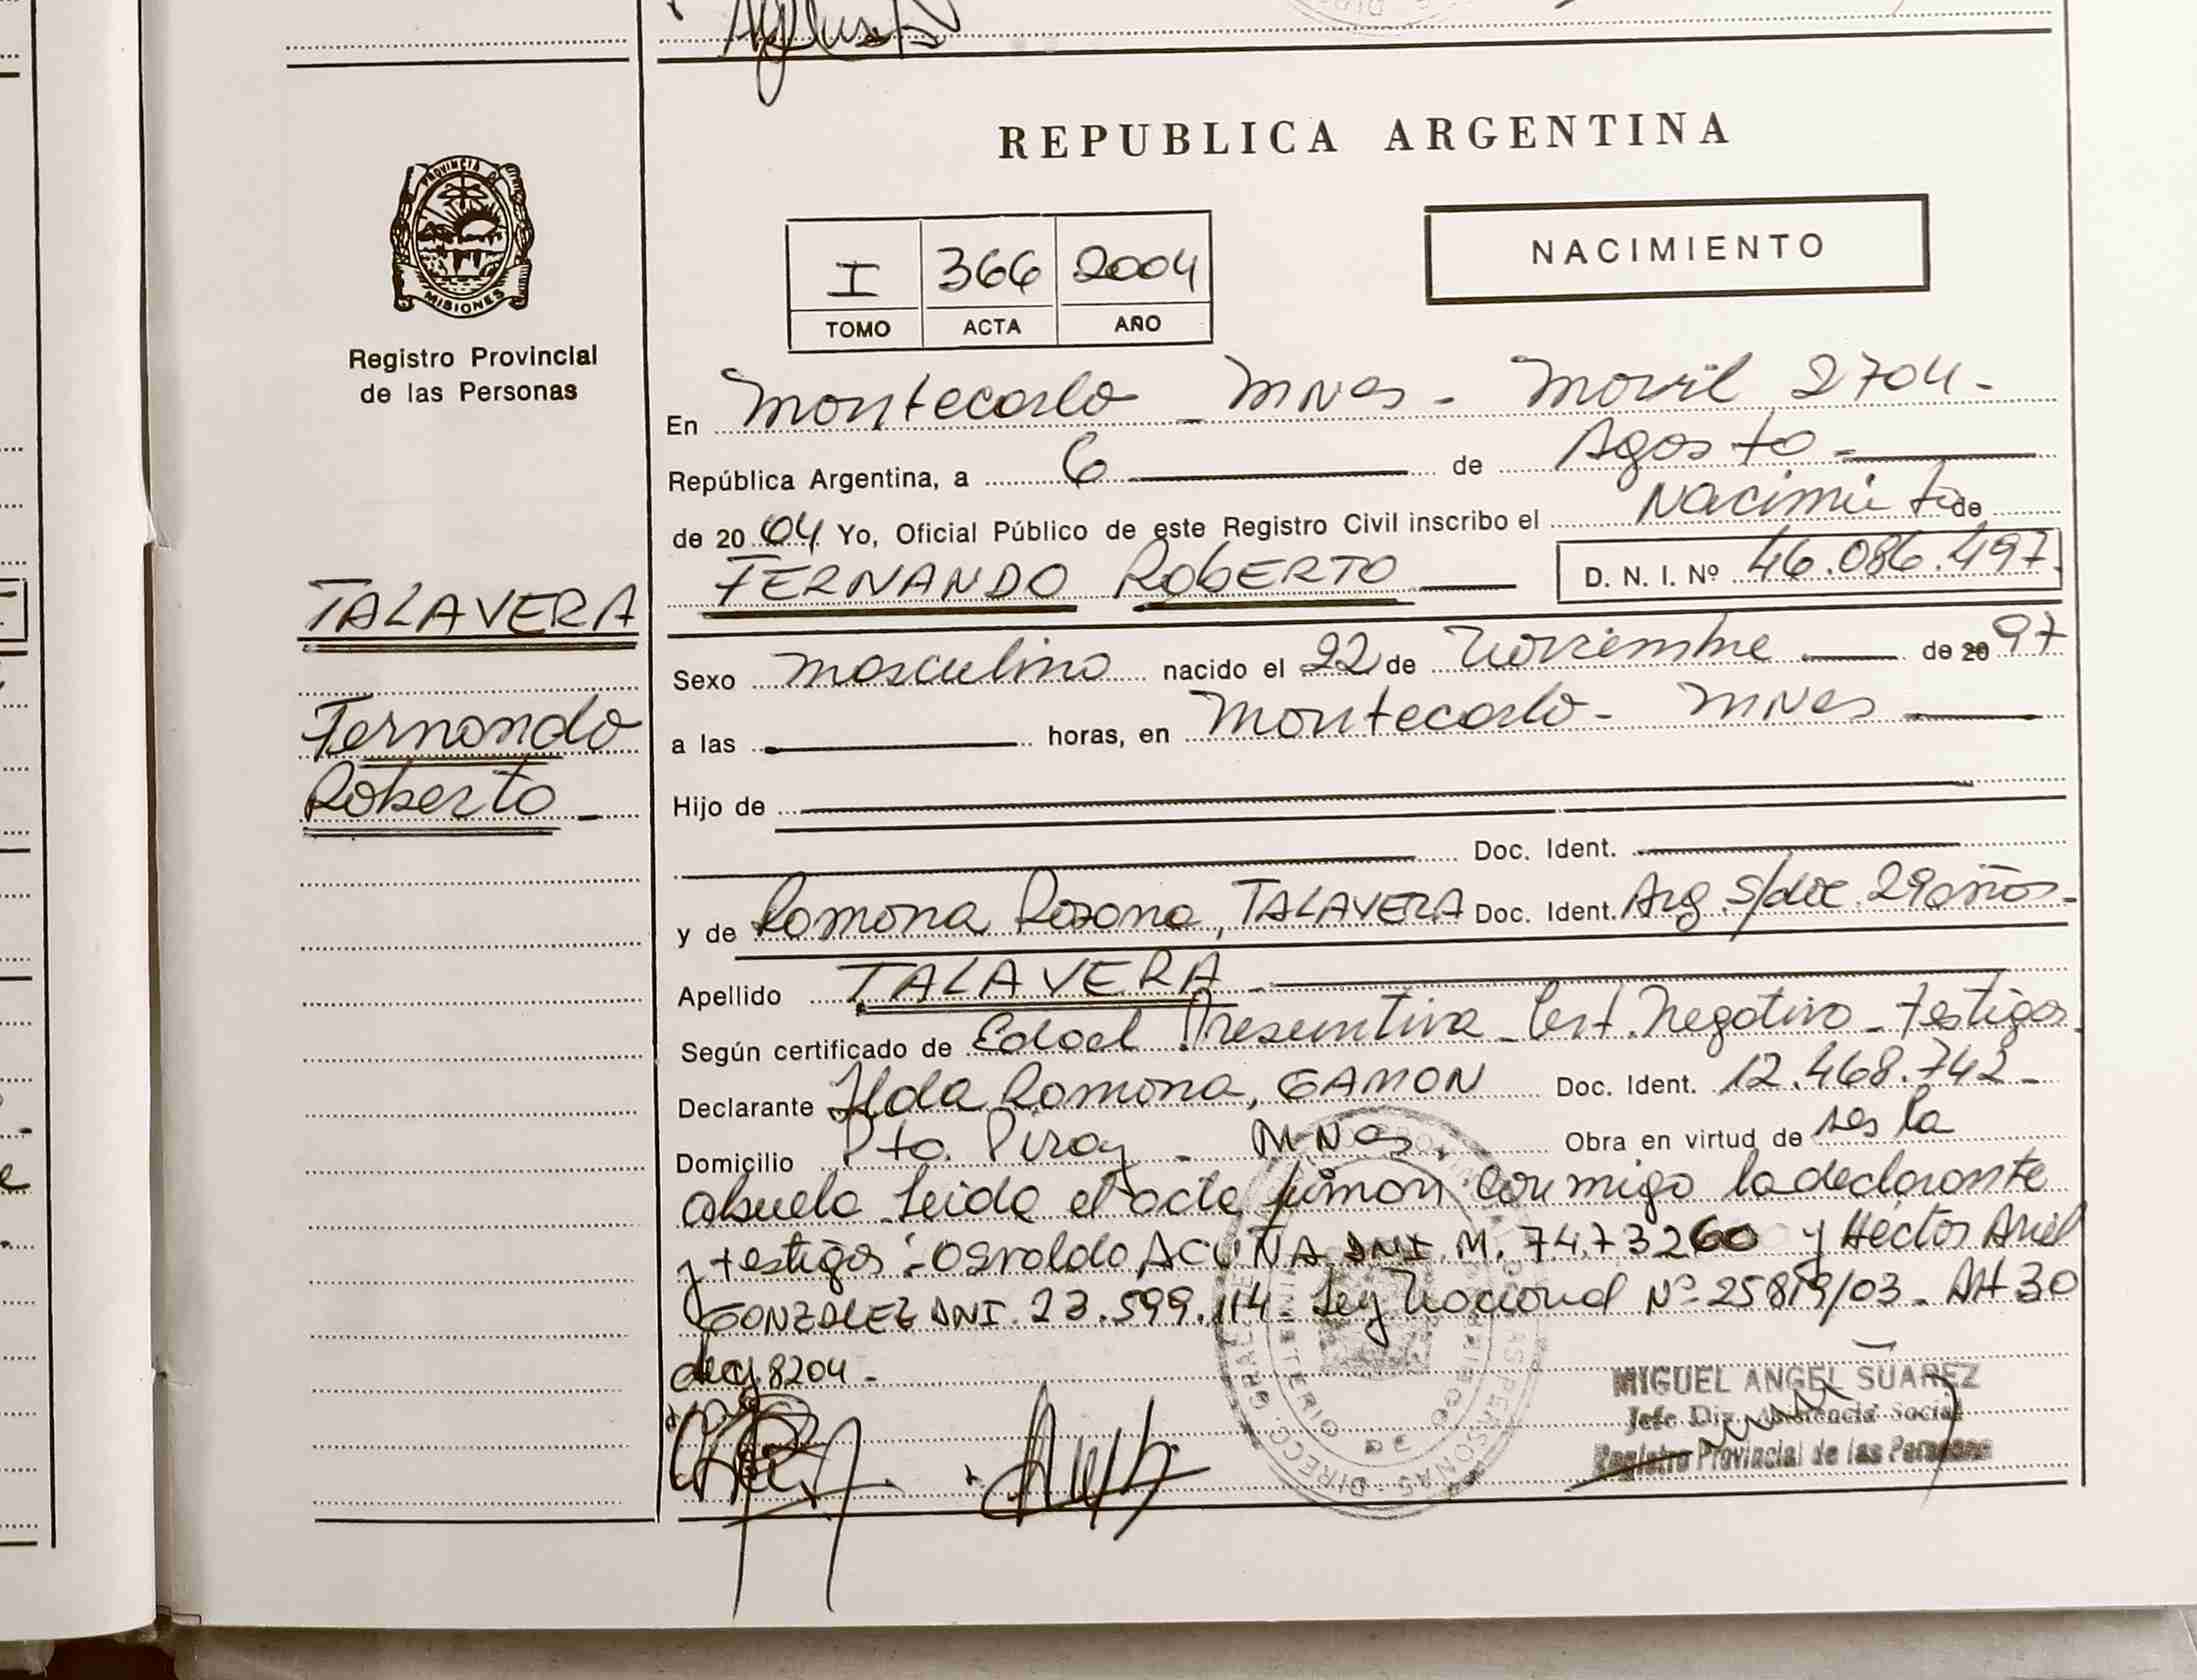 REPUBLICA ARGENTINA
PROVINCIA DE
MISIONES
Registro Provincial
de las Personas
I 366 2004
TOMO ACTA AÑO
NACIMIENTO
En Montecarlo - MNes - Movil 2704 -
República Argentina, a 6 de Agosto -
de 20 04 Yo, Oficial Público de este Registro Civil inscribo el Nacimiento de
FERNANDO ROBERTO D. N. I. Nº 46.086.497
TALAVERA
Fernando
Roberto -
Sexo masculino nacido el 22 de Noviembre de 20 97
a las horas, en Montecarlo - MNes
Hijo de
Doc. Ident.
y de Ramona Rosana, TALAVERA Doc. Ident. Arg. S/doc. 29 años -
Apellido TALAVERA -
Según certificado de Edad Presuntiva - Cert. Negativo - testigos
Declarante Ilda Ramona, GAMON Doc. Ident. 12.468.742 -
Domicilio Pto. Piray - MNes. Obra en virtud de ser la
abuela Leida el acta firman conmigo la declarante
y testigos: Osvaldo ACUÑA DNI. M. 7473260 y Héctor Ariel
GONZALEZ DNI. 23.599.114 - Ley Nacional Nº 25819/03 - Art 30
8204 -
MIGUEL ANGEL SUAREZ
Jefe Div. Asistencia Social
Registro Provincial de las Personas